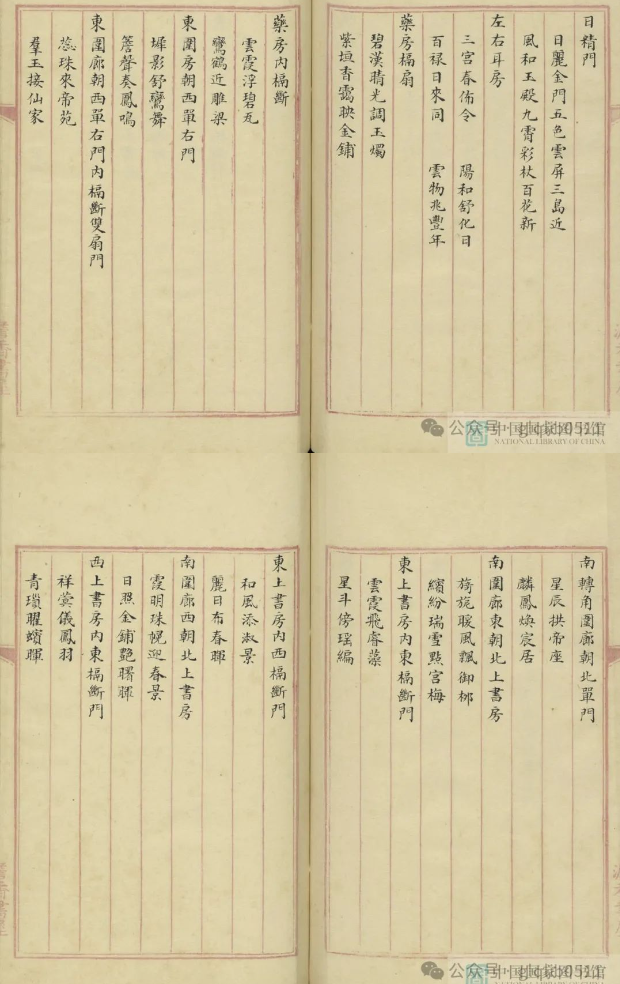 日精門
日麗金門五色雲屏三島近
風和玉殿九霄彩杖百花新
左右耳房
三宮春佈令　陽和舒化日
百禄日來同　雲物兆豐年
藥房槅扇
碧漢精光調玉燭
紫垣香靄映金鋪
藥房内槅斷
雲霞浮碧瓦
鸞鶴近雕梁
東圍房朝西單右門
墀影舒鸞舞
簷聲奏鳳鳴
東圍廊朝西單右門内槅斷雙扇門
蕊珠來帝苑
羣玉接仙家
南轉角圍廊朝北單門
星辰拱帝座
麟鳳煥宸居
南圍廊東朝北上書房
旖旎暖風飄御柳
繽紛瑞雪點宮梅
東上書房内東槅斷門
雲霞飛睿藻
星斗傍瑶編
東上書房内西槅斷門
和風添淑景
麗日布春暉
南圍廊西朝北上書房
霞明珠幌迎春景
日照金鋪艷曙暉
西上書房内東槅斷門
祥蓂儀鳳羽
青瑣耀螭暉
公众号
中國國家圖書館
NATIONAL LIBRARY OF CHINA
公众号
中國國家圖書館
NATIONAL LIBRARY OF CHINA